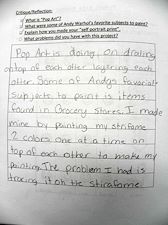 Critique/Reflection:
What is "Pop Art"?
What were some of Andy Warhol's favorite subjects to paint?
Explain how you made your "self portrait print".
What problems did you have with this project?
Pop Art is doing on drating
on top of each other layering each
other. Some of Andys favorial
Subjects to paint is items
found in Grocery Stores. I made
mine by painting my strifome
2 colors one at a time on
top of each other to make my
painting. The problem I had is
tracing it oh the stirafome